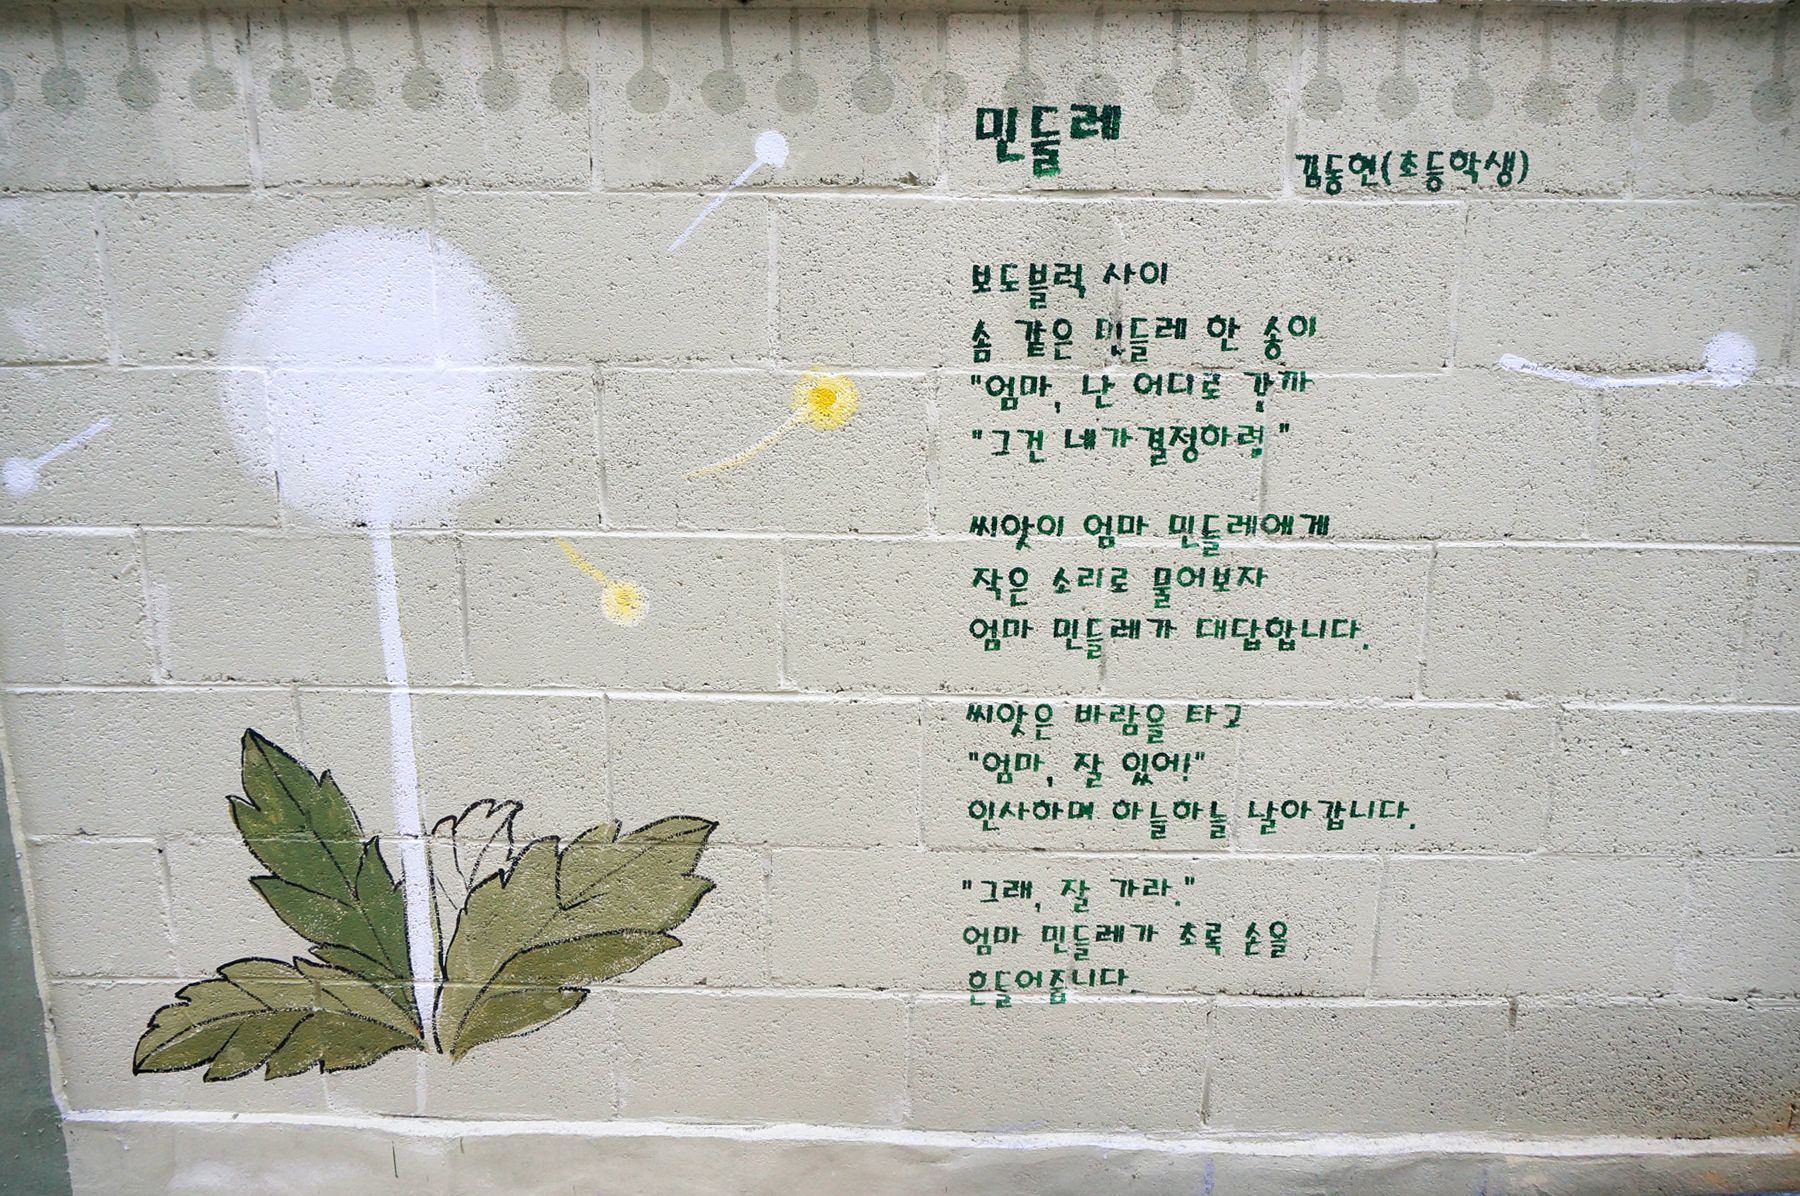 민들레
김동현(초등학생)
보도블럭 사이
솜 같은 민들레 한 송이
"엄마, 난 어디로 갈까
"그건 네가결정하렴"
씨앗이 엄마 민들레에게
작은 소리로 물어보자
엄마 민들레가 대답합니다.
씨앗은 바람을 타고
"엄마, 잘 있어!"
인사하며 하늘하늘 날아갑니다.
"그래, 잘 가라."
엄마 민들레가 초록 손을
흔들어줍니다.